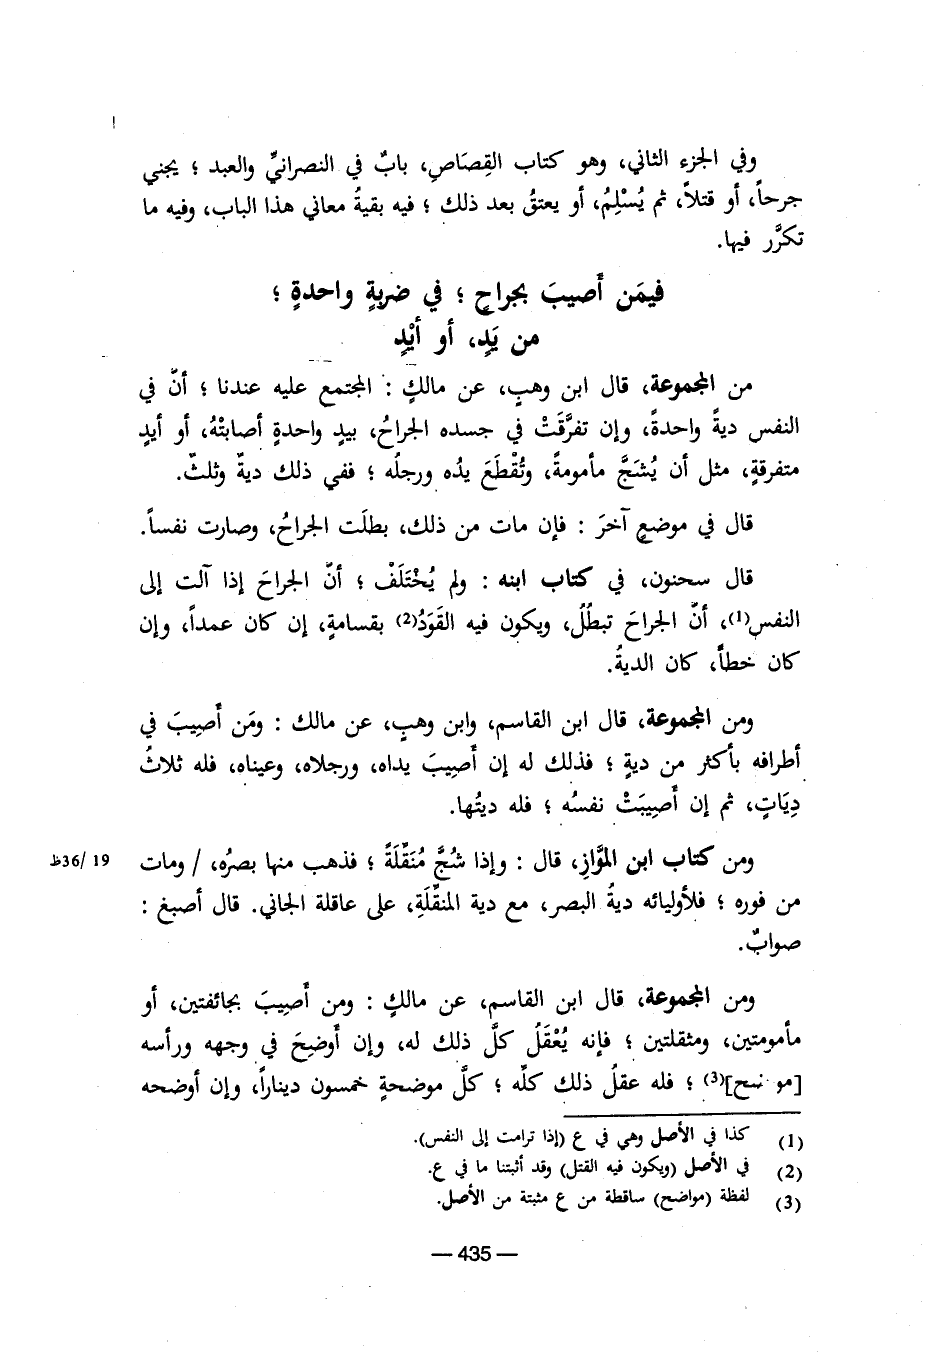 وفي الجزء الثاني، وهو كتاب القِصَاصِ، بابٌ في النصرانيِّ والعبد ؛ يجني
جرحاً، أو قتلاً، ثم يُسْلِمُ، أو يعتقُ بعد ذلك ؛ فيه بقيةُ معاني هذا الباب، وفيه ما
تكرَّر فيها.
فيمَن أصيبَ بجراحٍ ؛ في ضربةٍ واحدةٍ ؛
من يَدٍ، أو أيْدٍ
من المجموعة، قال ابن وهبٍ، عن مالكٍ : المجتمع عليه عندنا ؛ أنّ في
النفس ديةً واحدةً، وإن تفرَّقَتْ في جسده الجراحُ، بيدٍ واحدةٍ أصابتْهُ، أو أيدٍ
متفرقةٍ، مثل أن يُشَجَّ مأمومةً، وتُقْطَعَ يدُه ورجلُه ؛ ففي ذلك ديةٌ وثلثٌ.
قال في موضعٍ آخرَ : فإن مات من ذلك، بطلَت الجراحُ، وصارت نفساً.
قال سحنون، في كتاب ابنه : ولم يُخْتَلَفْ ؛ أنّ الجراحَ إذا آلت إلى
النفس(1)، أنّ الجراحَ تبطُلُ، ويكون فيه القَوَدُ(2) بقسامةٍ، إن كان عمداً، وإن
كان خطأً، كان الديةُ.
ومن المجموعة، قال ابن القاسم، وابن وهبٍ، عن مالك : ومَن أصِيبَ في
أطرافه بأكثر من ديةٍ ؛ فذلك له إن أصِيبَ يداه، ورجلاه، وعيناه، فله ثلاثُ
دِيَاتٍ، ثم إن أصِيبَتْ نفسُه ؛ فله ديتُها.
ومن كتاب ابن الموَّازِ، قال : وإذا شُجَّ مُنَقِّلَةً ؛ فذهب منها بصرُه، / ومات 19 /36ظ
من فوره ؛ فلأوليائه ديةُ البصر، مع دية المنقِّلَةِ، على عاقلة الجاني. قال أصبغ :
صوابٌ.
ومن المجموعة، قال ابن القاسم، عن مالكٍ : ومن أصِيبَ بجائفتين، أو
مأمومتين، ومثقلتين ؛ فإنه يُعْقَلُ كلَّ ذلك له، وإن أوضِحَ في وجهه ورأسه
[مواضح](3) ؛ فله عقلُ ذلك كلّه ؛ كلَّ موضحةٍ خمسون ديناراً، وإن أوضحه
(1) كذا في الأصل وهي في ع (إذا ترامت إلى النفس).
(2) في الأصل (ويكون فيه القتل) وقد أثبتنا ما في ع.
(3) لفظة (مواضح) ساقطة من ع مثبتة من الأصل.
— 435 —